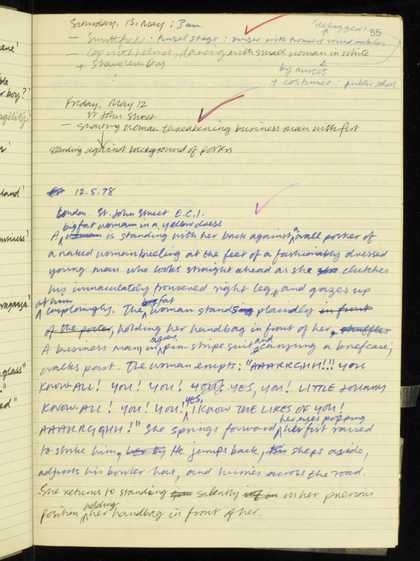 Saturday, 13 May : 3am
55
Smithfield :
Cop with helmet, dancing with small woman in white
+ Shoulder bag
+ costume : public school
Friday, May 12
St John Street
– snarling woman threatening business man with fist
standing against background of posters
12.5.78
London. St. John Street E.C.1.
big fat woman in a yellow dress
A woman is standing with her back against a wall poster of
a naked woman kneeling at the feet of a fashionably dressed
young man who looks straight ahead as she clutches
his immaculately trousered right leg, and gazes up
at him
imploringly. The big fat woman stands placidly in front
of the poster, holding her handbag in front of her.
A business man in a grey pin stripe suit and carrying a briefcase,
walks past. The woman erupts: "AAAARRGHH!!! YOU
KNOW-ALL! YOU! YOU! YOU! YES, YOU! LITTLE JOHNNY
KNOW-ALL! YOU! YOU! YES, I KNOW THE LIKES OF YOU!
AAAARRGHH!" She springs forward, her eyes popping her fist raised
to strike him, He jumps back, steps aside,
adjusts his bowler hat, and hurries across the road.
She returns to standing silently in her previous
position, holding her handbag in front of her.